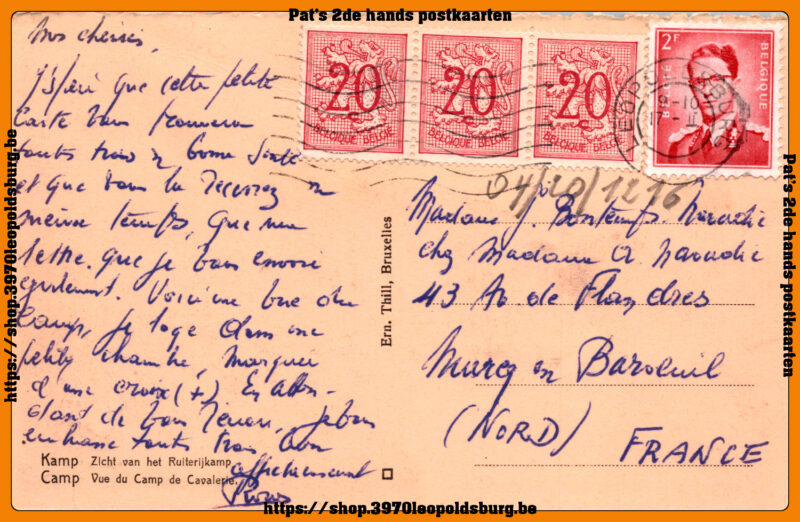 Pat's 2de hands postkaarten
Mes cheries,
J'espère que cette petite
carte vous trouvera
toutes trois en bonne santé
et que vous la recevrez en
même temps, que ma
lettre que je vous envoie
également. Voici une vue du
Camp, je loge dans une
petite chambre, marquée
d'une croix (+) En atten-
dant de vous revoir, je vous
embrasse toutes trois bien
affectueusement
20
BELGIQUE·BELGIE
20
BELGIQUE·BELGIE
20
BELGIQUE·BELGIE
2F
BELGIE
BELGIQUE
04/20/1216
Madame J. Bontemps
chez Madame A.
43 Av de Flandres
Marcq en Baroeuil
(NORD)
FRANCE
Ern. Thill, Bruxelles
Kamp Zicht van het Ruiterijkamp.
Camp Vue du Camp de Cavalerie.
https://shop.3970leopoldsburg.be
Pat's 2de hands postkaarten
https://shop.3970leopoldsburg.be